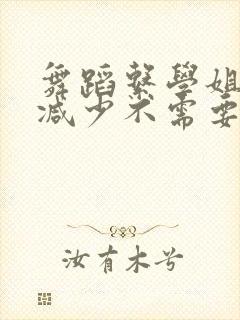 舞蹈繫學姐
減少不需要
汝有木兮